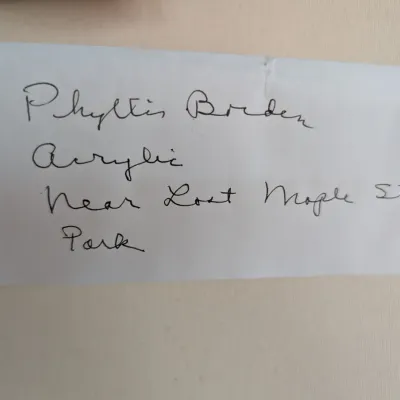 Phyllis Borden
Acrylic
Near Lost Maple S
Park